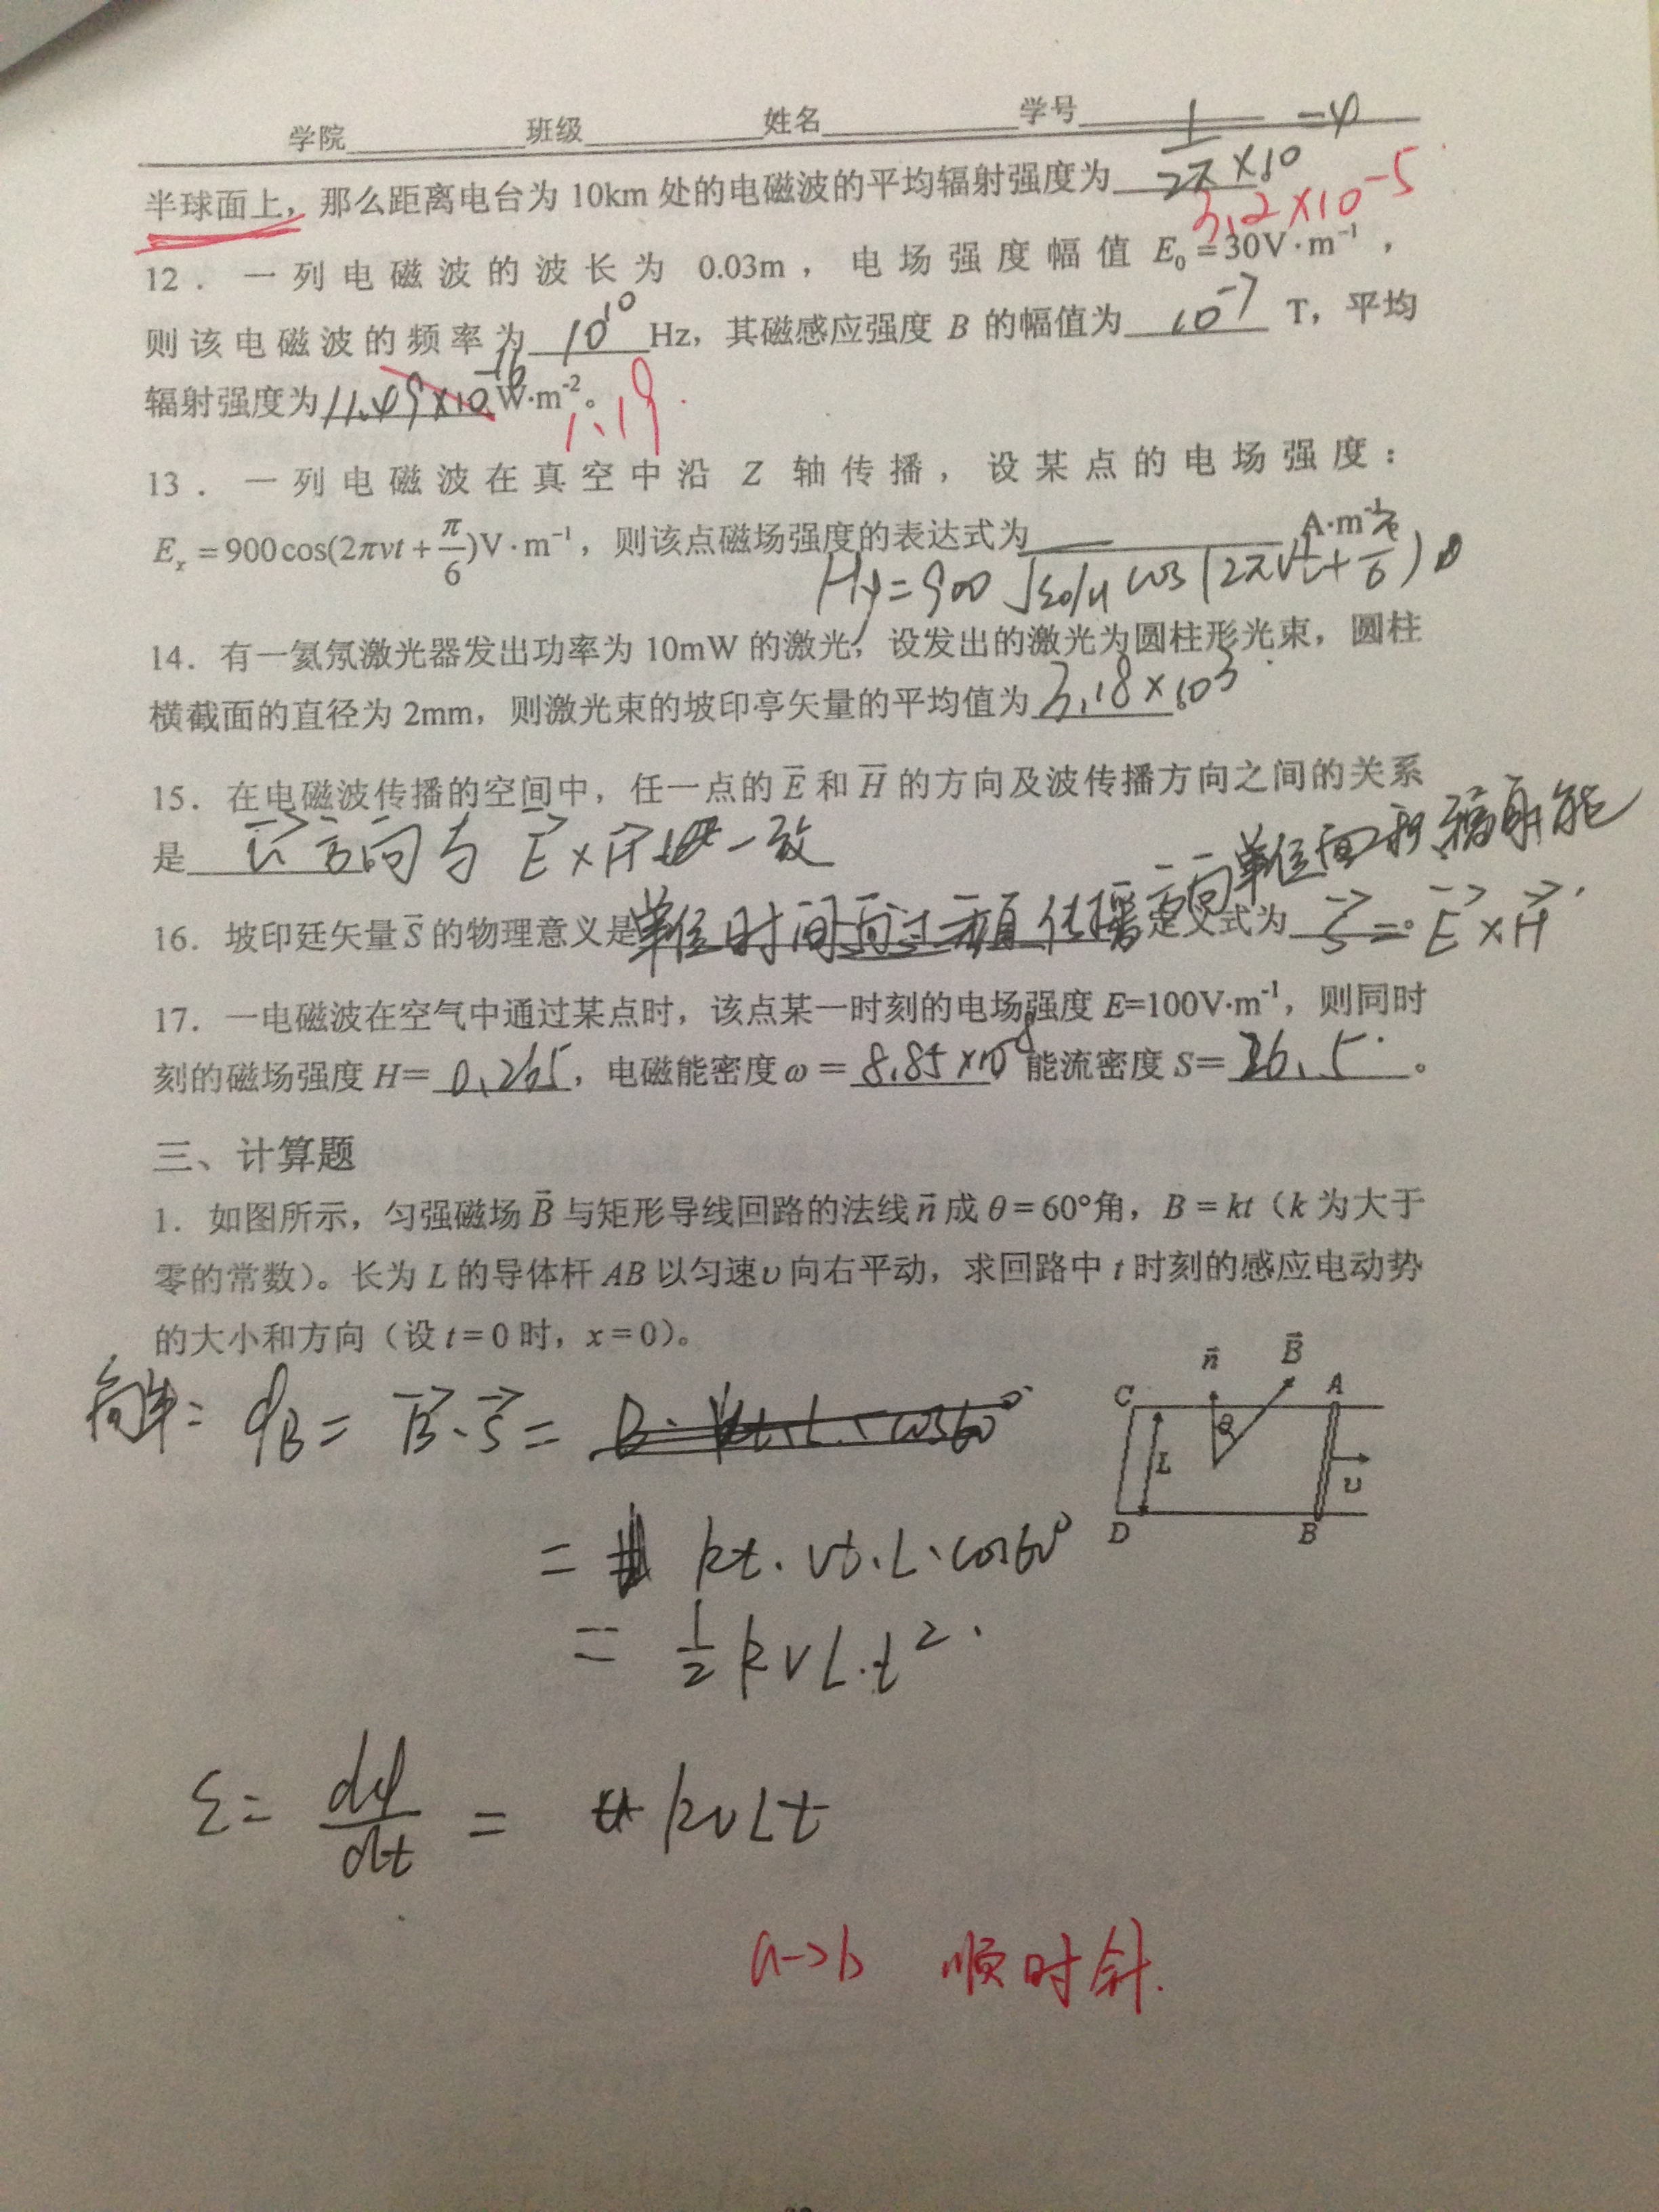 学院 班级 姓名 学号
半球面上，那么距离电台为 10km 处的电磁波的平均辐射强度为 1/2π ×10^-4
3.2×10^-5
12．一列电磁波的波长为 0.03m，电场强度幅值 E₀=30V·m⁻¹，
则该电磁波的频率为 10^10 Hz，其磁感应强度 B 的幅值为 10^-7 T，平均
辐射强度为 11.49×10^-16 W·m⁻²。 1.19
13．一列电磁波在真空中沿 Z 轴传播，设某点的电场强度：
Eₓ=900cos(2πνt+π/6)V·m⁻¹，则该点磁场强度的表达式为 A·m⁻¹
Hy=900 √ε0/μ cos(2πνt+π/6)
14．有一氦氖激光器发出功率为 10mW 的激光，设发出的激光为圆柱形光束，圆柱
横截面的直径为 2mm，则激光束的坡印亭矢量的平均值为 3.18×10^3
15．在电磁波传播的空间中，任一点的 E⃗ 和 H⃗ 的方向及波传播方向之间的关系
是 方向与 E⃗×H⃗ 一致
单位面积辐射能
16．坡印廷矢量 S⃗ 的物理意义是 单位时间通过 传播方向 定义式为 S⃗=E⃗×H⃗
17．一电磁波在空气中通过某点时，该点某一时刻的电场强度 E=100V·m⁻¹，则同时
刻的磁场强度 H= 0.265，电磁能密度 ω= 8.85×10^-8 能流密度 S= 26.5。
三、计算题
1．如图所示，匀强磁场 B⃗ 与矩形导线回路的法线 n⃗ 成 θ=60°角，B=kt（k 为大于
零的常数）。长为 L 的导体杆 AB 以匀速υ向右平动，求回路中 t 时刻的感应电动势
的大小和方向（设 t=0 时，x=0）。
n⃗ B⃗
C A
θ L υ
D B
解: φB= B⃗·S⃗=
= kt·vt·L·cos60°
= 1/2 kvL·t²
ε= dφ/dt = kvLt
a->b 顺时针.